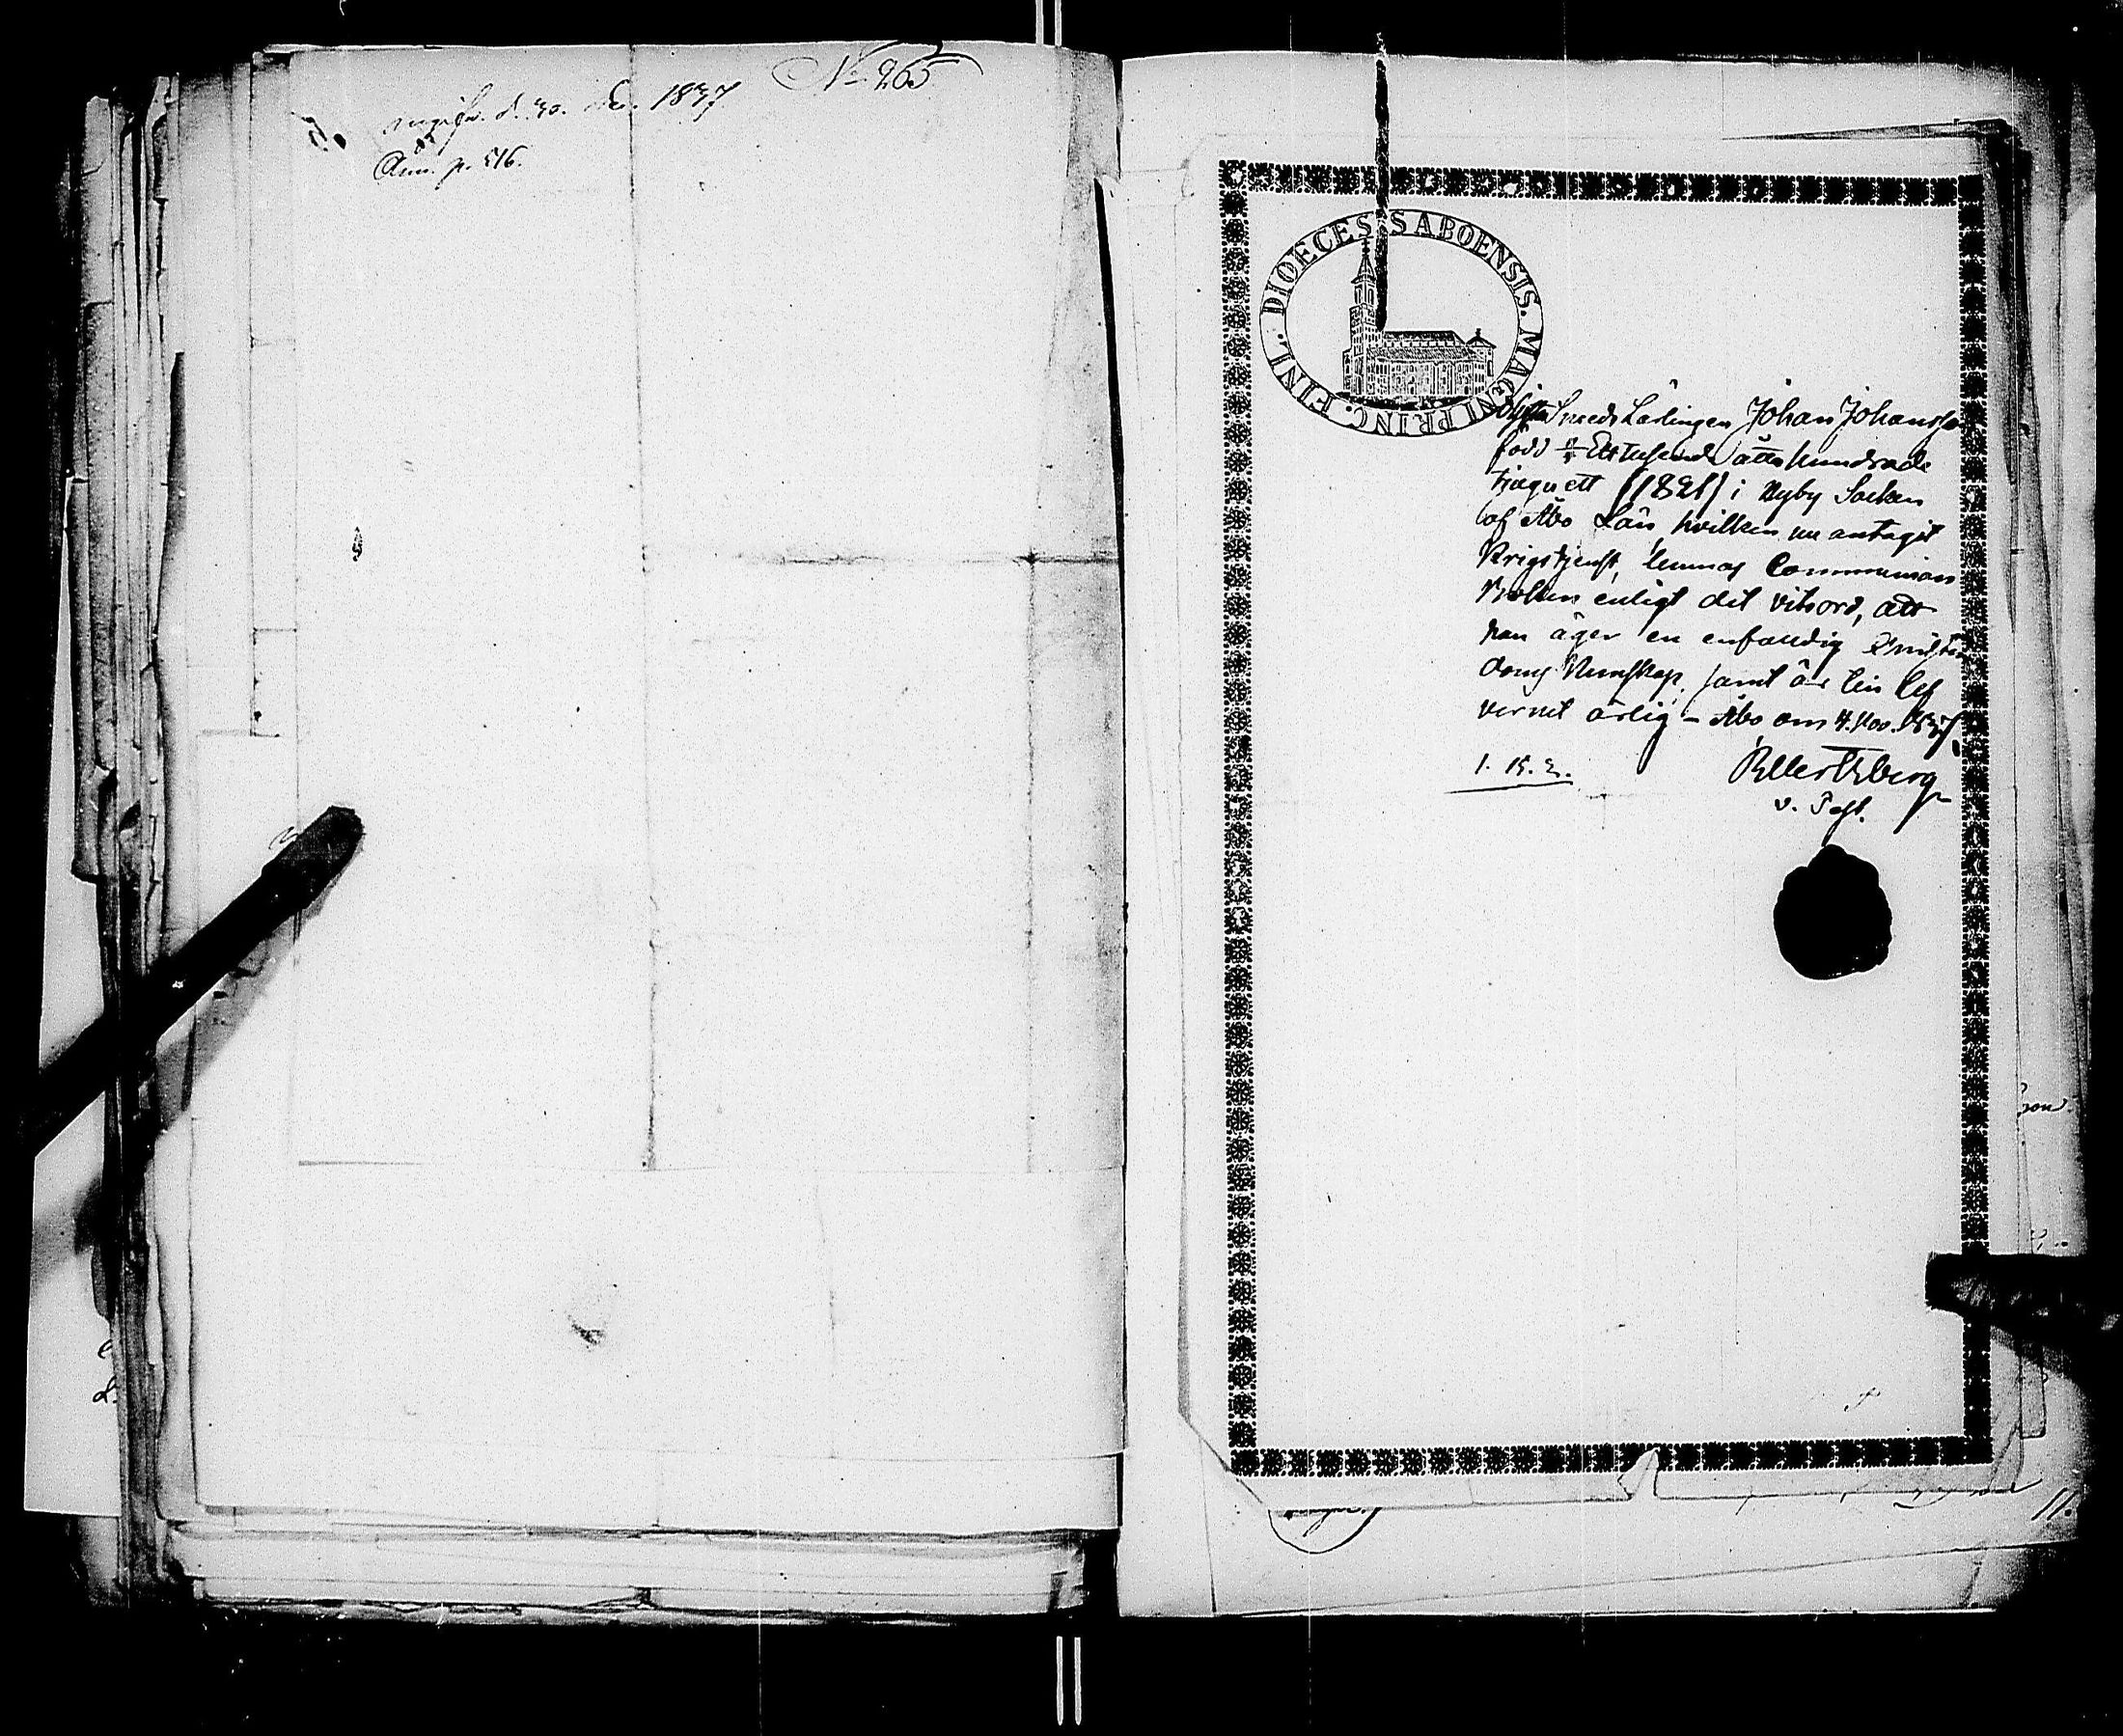 № 265
angifv. d. 30. Dec. 1837
Ann. p. 516.
DIOECESIS ABOENSIS. MAGNI PRINC. FINL.
Smeds Lärlingen Johan Johansson
född Ettusende åttahundrade
tjuguett (1821) i Nyby Socken
af Åbo Län, hvilken nu antagit
Krigstjenst, lemnas Communion
enligt det vitsord, att
han äger en enfaldig Christen
doms Kunskap, samt är till lef
vernet ärlig - Åbo om 4. Nov. 1837.
1. 15. 2.
v. Past.
11.